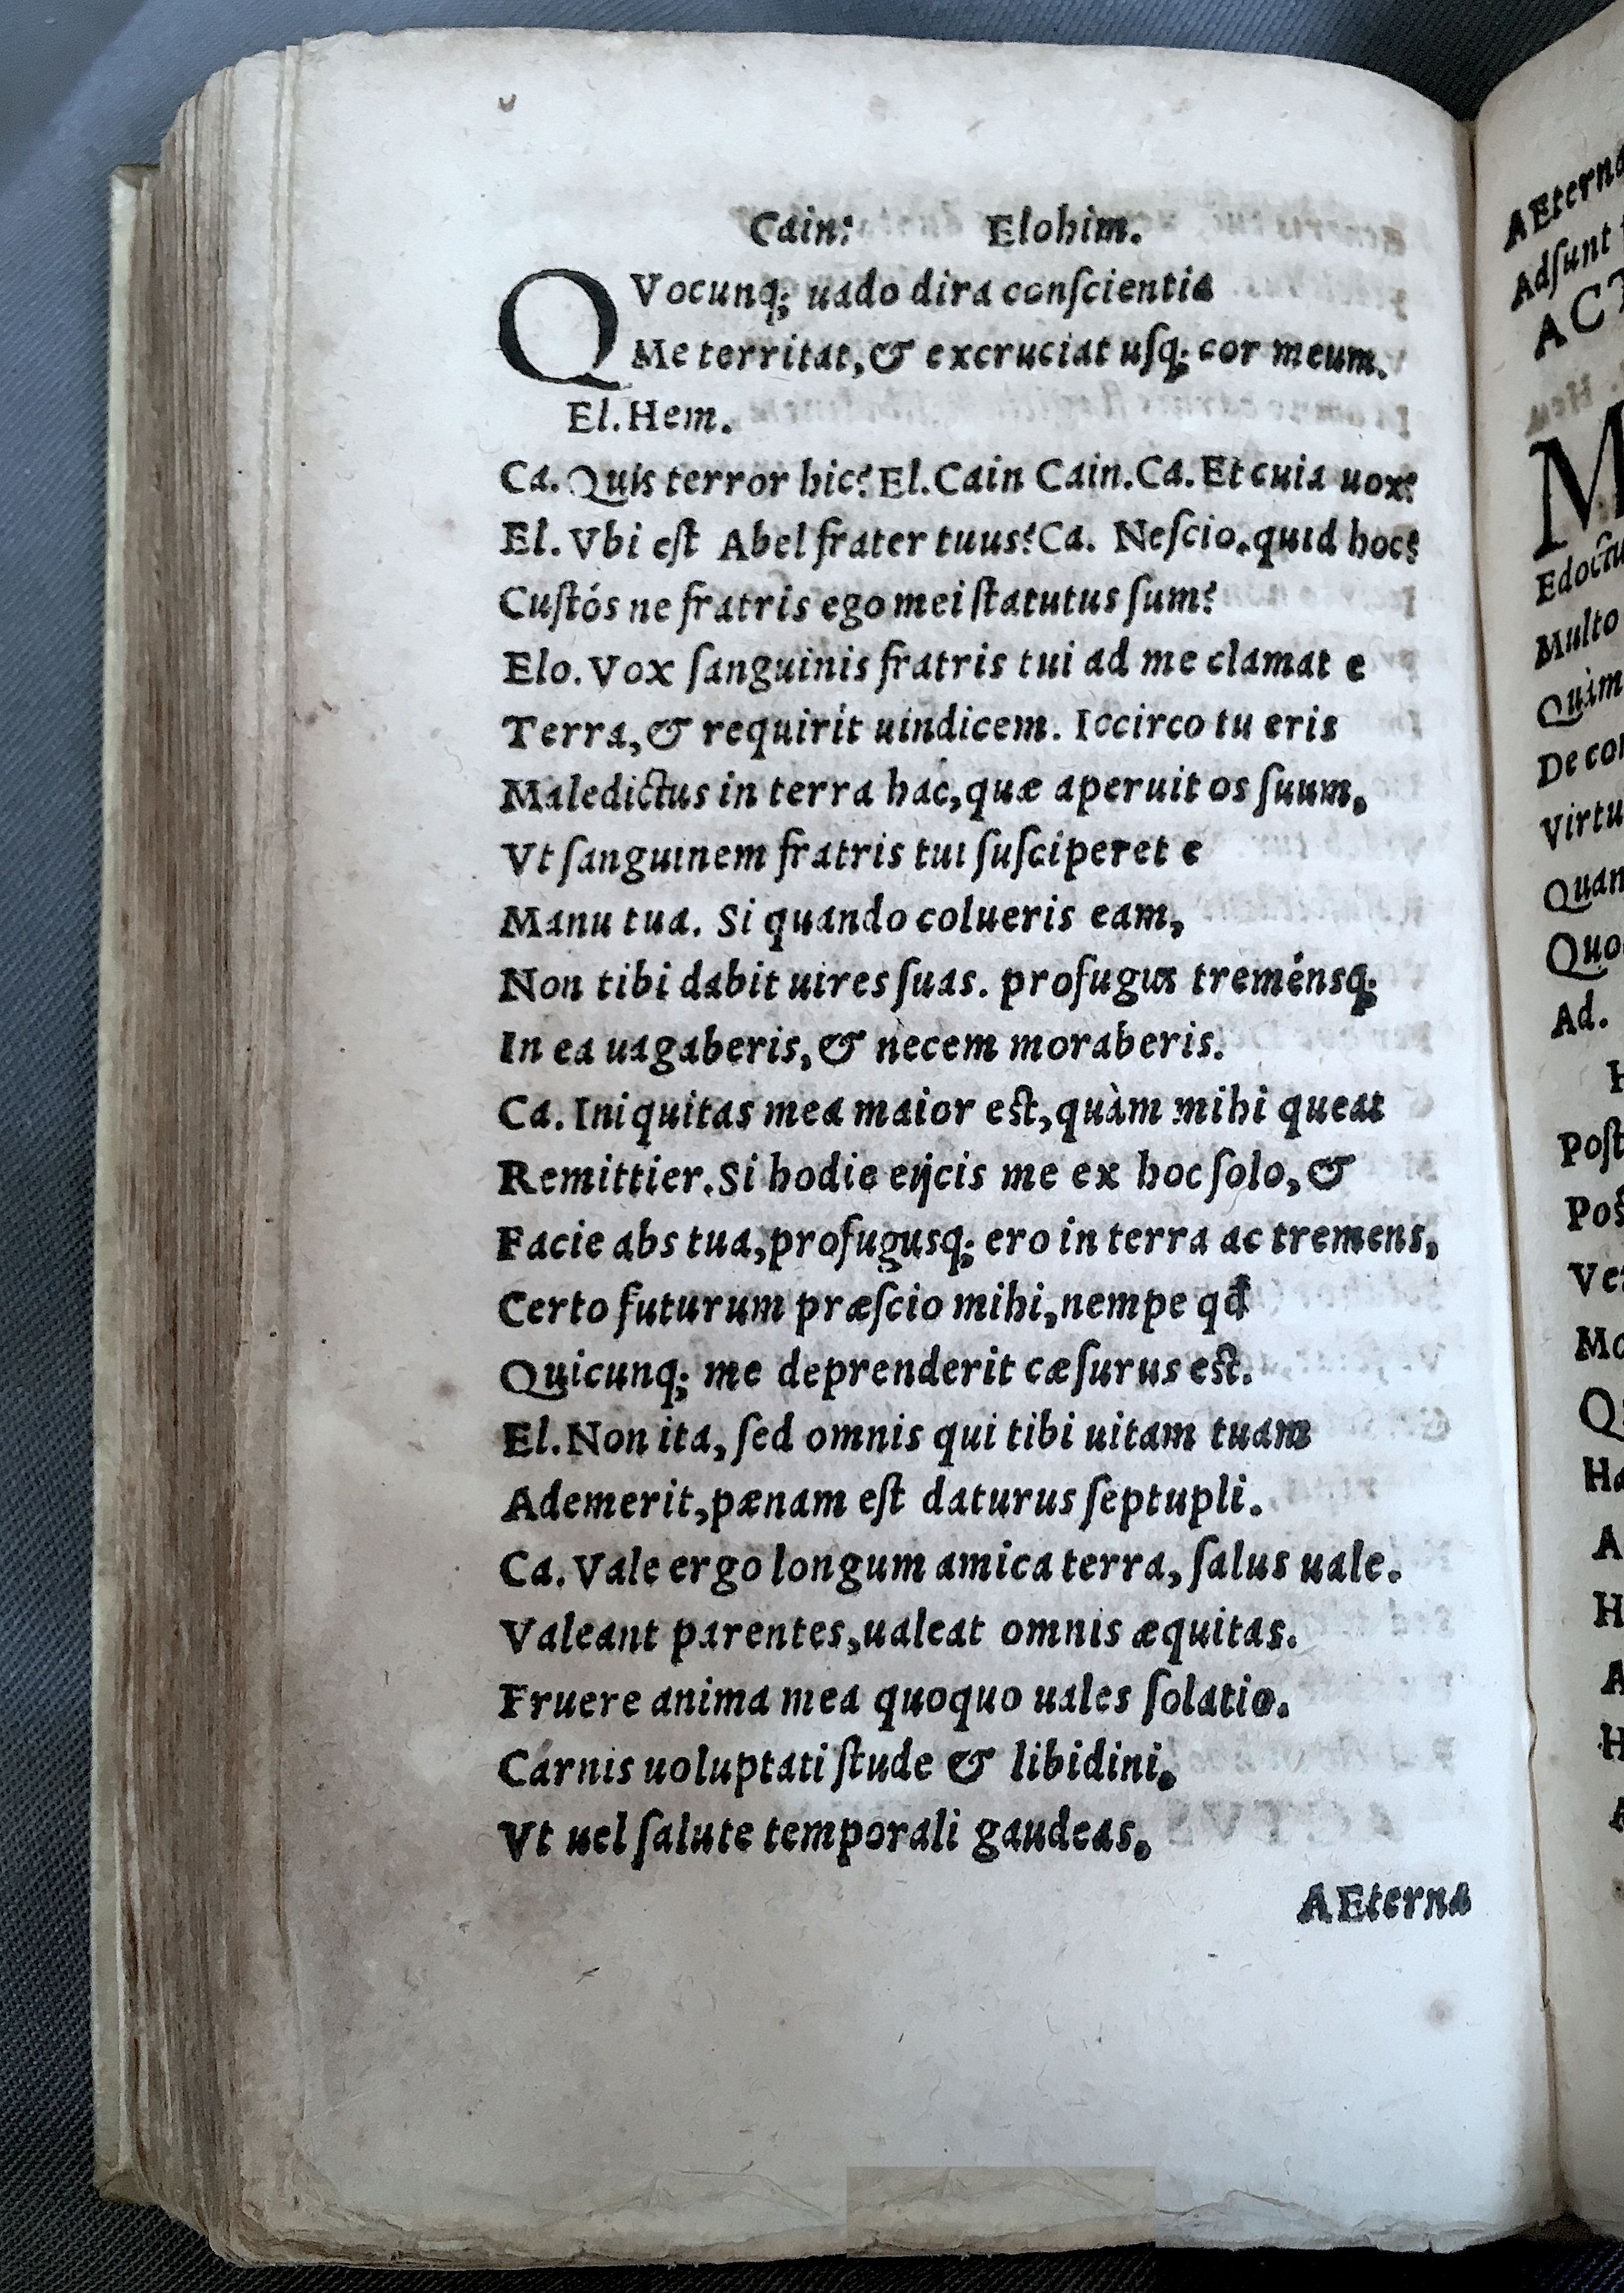 Cain: Elohim.
QVocunq; uado dira conſcientia
Me territat, & excruciat uſq; cor meum.
El. Hem.
Ca. Quis terror hic? El. Cain Cain. Ca. Et cuia uox?
El. Vbi eſt Abel frater tuus? Ca. Neſcio. quid hoc?
Cuſtós ne fratris ego mei ſtatutus ſum?
Elo. Vox ſanguinis fratris tui ad me clamat e
Terra, & requirit uindicem. Iccirco tu eris
Maledictus in terra hac, quæ aperuit os ſuum,
Vt ſanguinem fratris tui ſuſciperet e
Manu tua. Si quando colueris eam,
Non tibi dabit uires ſuas. profugus treménsq;
In ea uagaberis, & necem moraberis.
Ca. Iniquitas mea maior eſt, quàm mihi queat
Remittier. Si hodie eijcis me ex hoc ſolo, &
Facie abs tua, profugusq; ero in terra ac tremens,
Certo futurum præſcio mihi, nempe qđ
Quicunq; me deprenderit cæſurus eſt.
El. Non ita, ſed omnis qui tibi uitam tuam
Ademerit, pænam eſt daturus ſeptupli.
Ca. Vale ergo longum amica terra, ſalus uale.
Valeant parentes, ualeat omnis æquitas.
Fruere anima mea quoquo uales ſolatio.
Carnis uoluptati ſtude & libidini,
Vt uel ſalute temporali gaudeas,
AEterna
AEterna
Adſunt
M
Edoctu
Multo
Quim
De con
Virtu
Quan
Quo
Ad.
H
Poſt
Poſ
Ve
Mo
Q
Ha
A
H
A
H